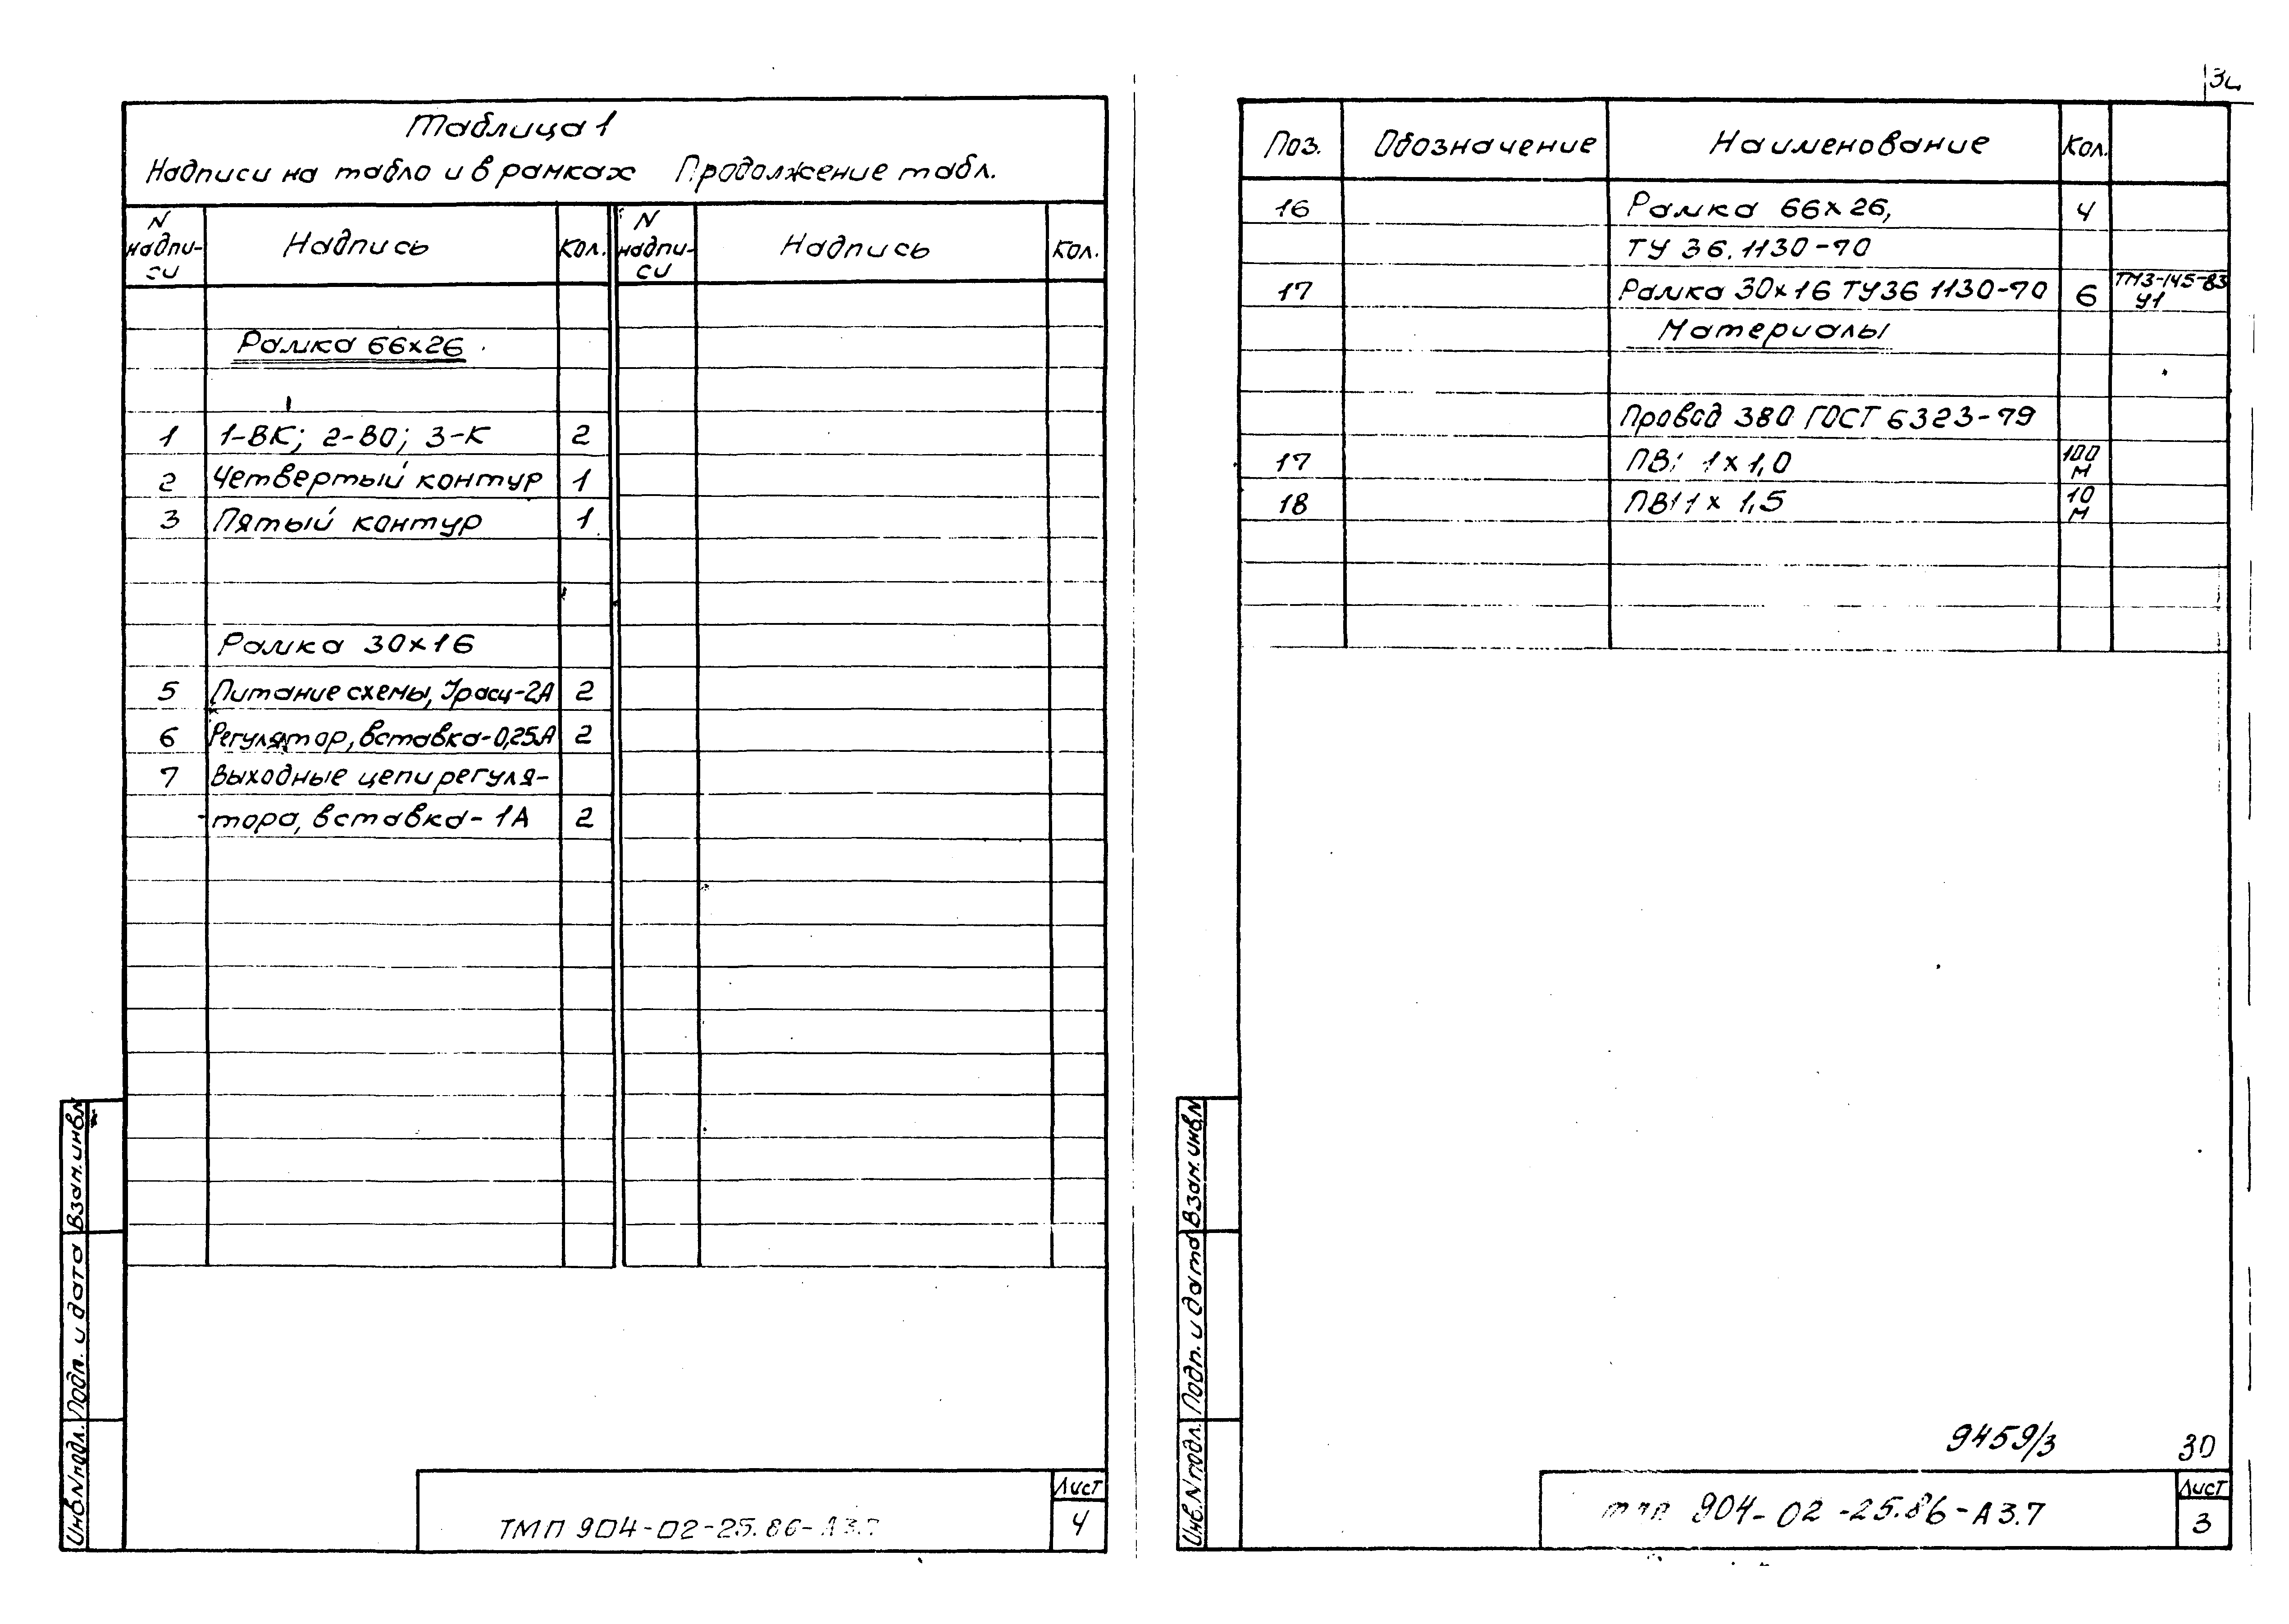 Таблица 1
Надписи на табло и в рамках Продолжение табл.
N надпи-си Надпись кол. N надпи-си Надпись кол.
Рамка 66х26
1 1-ВК; 2-ВО; 3-К 2
2 Четвертый контур 1
3 Пятый контур 1
Рамка 30х16
5 Питание схемы, Iрасц-2А 2
6 Регулятор, вставка-0,25А 2
7 Выходные цепи регуля-
тора, вставка-1А 2
Взам.инв.N
Подп. и дата
Инв.N подл.
ТМП 904-02-25.86-А3.7
Лист
4
Поз. Обозначение Наименование Кол.
16 Рамка 66х26, 4
ТУ 36.1130-70
17 Рамка 30х16 ТУ36 1130-70 6 ТМ3-145-83 У1
Материалы
Провод 380 ГОСТ 6323-79
17 ПВ1 1х1,0 100 м
18 ПВ1 1х1,5 10 м
Взам.инв.N
Подп. и дата
Инв.N подл.
9459/3 30
904-02-25.86-А3.7
Лист
3